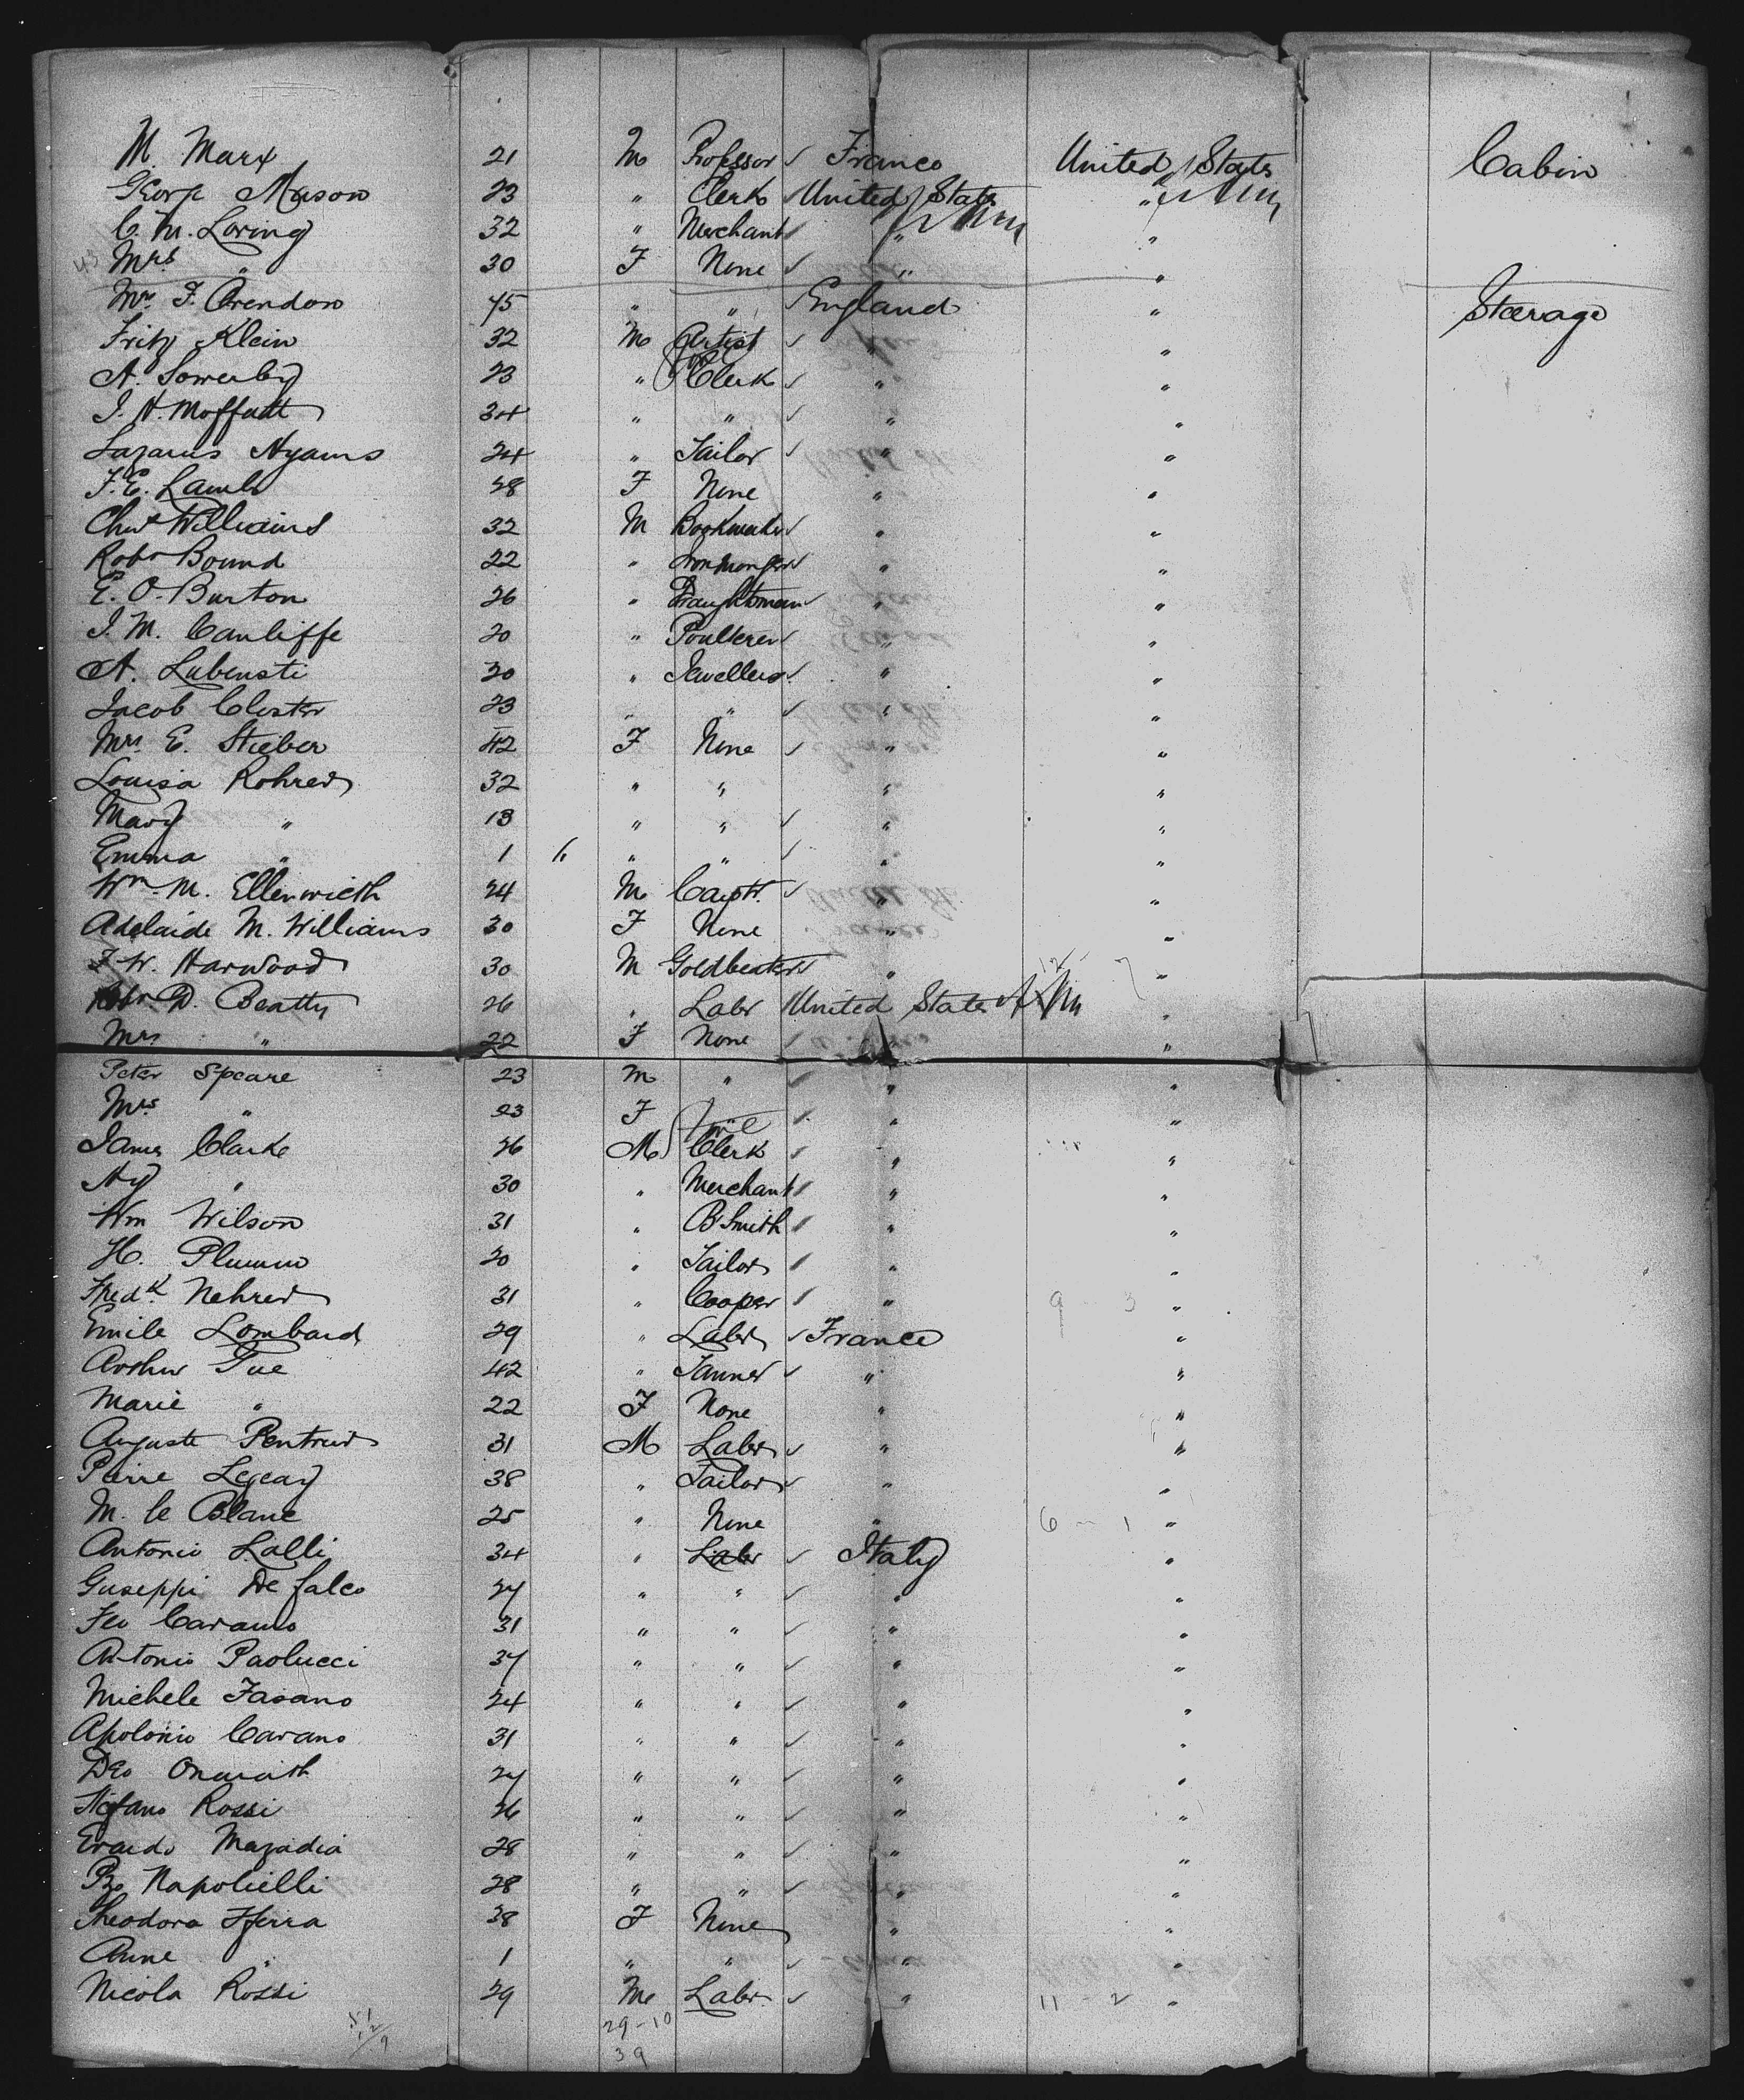 M. Marx 21 M Professor ✓ France United States Cabin
George Mason 23 " Clerk ✓ United States "
C. M. Loring 32 " Merchant " "
43 Mrs " 30 F None ✓ " "
Mrs F. Orendon 45 " " ✓ England " Steerage
Fritz Klein 32 M Artist ✓ " "
A. Sowerby 23 " Clerk ✓ " "
J. H. Moffatt 34 " " ✓ " "
Lazarus Hyams 24 " Tailor ✓ " "
F. E. Lamb 28 F None " "
Chas Williams 32 M Bookmaker ✓ " "
Robt Bound 22 " Ironmonger ✓ " "
E. O. Burton 26 " Draughtsman ✓ " "
J. M. Canliffe 20 " Poulterer ✓ " "
A. Lubensti 30 " Jewellers ✓ " "
Jacob Closter 23 " " ✓ " "
Mrs E. Stieber 42 F None ✓ " "
Louisa Rohrer 32 " " " "
Mary " 13 " " ✓ " "
Emma " 1 6 " " ✓ " "
Wm. M. Ellenwieth 24 M Capt. ✓ " "
Adelaide M. Williams 30 F None " "
F. W. Harwood 30 M Goldbeater ✓ " 12 - 7 "
Robt D. Beatty 26 " Labr United States "
Mrs " 22 F None ✓ "
Peter Speare 23 M " ✓ " "
Mrs " 23 F ✓ " "
James Clarke 26 M Clerk ✓ " "
Hy " 30 " Merchant ✓ " "
Wm Wilson 31 " B Smith ✓ " "
H. Plummer 20 " Tailor ✓ " "
Fredk. Nehrer 31 " Cooper ✓ " 9 - 3 "
Emile Lombard 29 " Labr ✓ France "
Arthur Tue 42 " Tanner ✓ " "
Marie " 22 F None " "
Auguste 31 M Labr ✓ " "
Pierre Legeay 38 " Tailor ✓ " "
M. le Blanc 25 " None " 6 - 1 "
Antonio Lalli 34 " Labr ✓ Italy "
Guseppi De Falco 27 " " ✓ " "
Carano 31 " " ✓ " "
Antonio Paolucci 37 " " ✓ " "
Michele Fasano 24 " " ✓ " "
Apolonio Carano 31 " " ✓ " "
Deo 27 " " ✓ " "
Stefano Rossi 26 " " ✓ " "
Evardo Mazadia 28 " " ✓ " "
Napolielli 28 " " ✓ " "
Theodora Sferra 38 F None " "
Anne " 1 " " ✓ " "
Nicola Rossi 29 M Labr ✓ " 11 - 2 "
29 - 10
39